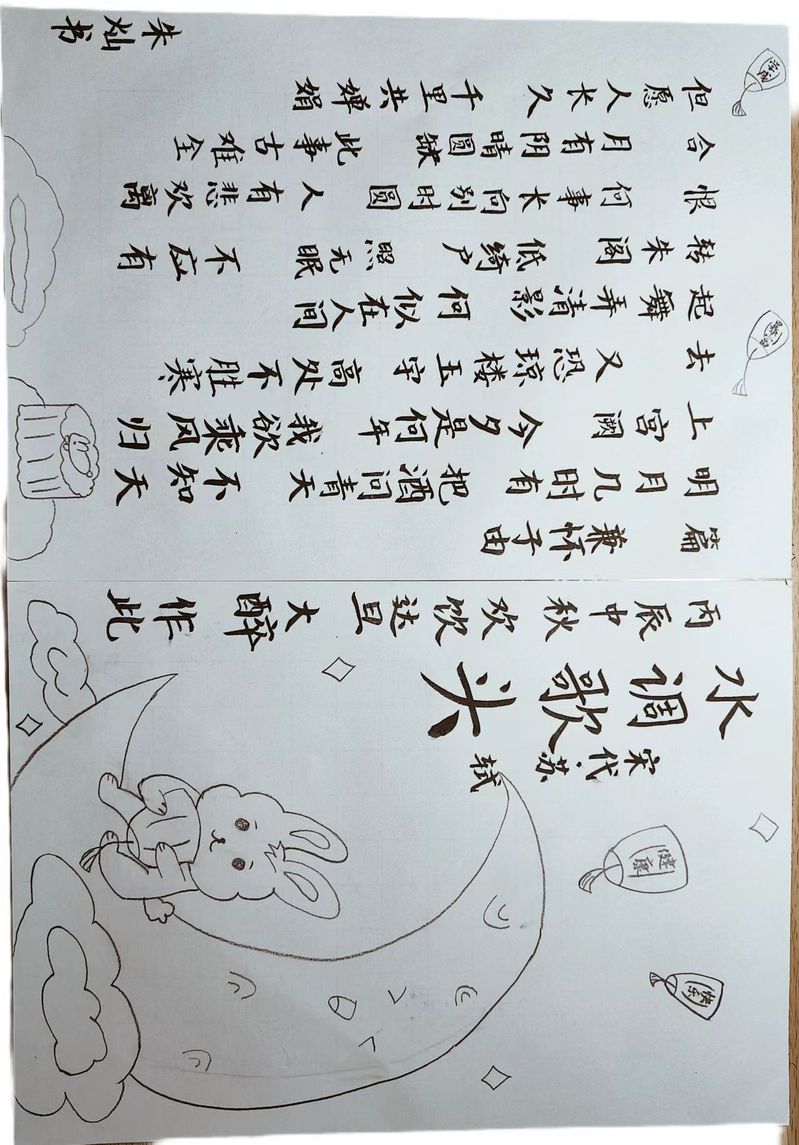 水调歌头
宋代·苏轼
丙辰中秋 欢饮达旦 大醉 作此
篇 兼怀子由
明月几时有 把酒问青天 不知天
上宫阙 今夕是何年 我欲乘风归
去 又恐琼楼玉宇 高处不胜寒
起舞弄清影 何似在人间
转朱阁 低绮户 照无眠 不应有
恨 何事长向别时圆 人有悲欢离
合 月有阴晴圆缺 此事古难全
但愿人长久 千里共婵娟
朱灿书
健康
快乐